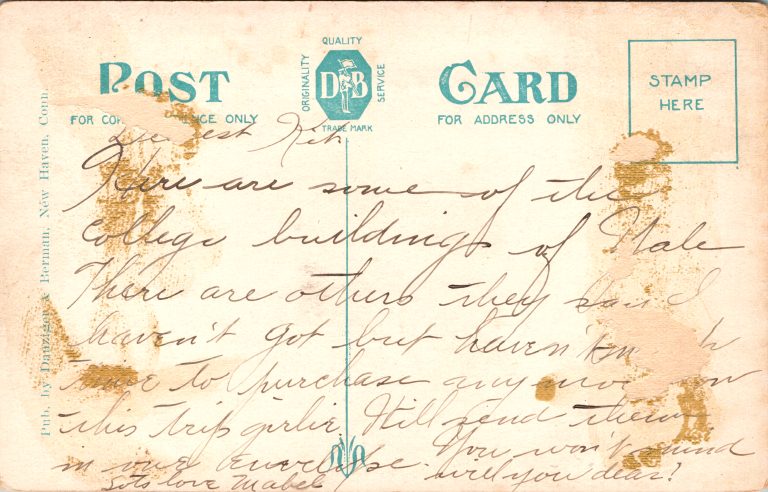 QUALITY
ORIGINALITY
SERVICE
D B
TRADE MARK
POST CARD
FOR ONLY
FOR ADDRESS ONLY
STAMP
HERE
Pub. by Danziger & Berman, New Haven, Conn.
Dearest Kit
Here are some of the
College buildings of Yale
There are others they said I
haven't got but haven't much
time to purchase any more on
this trip girlie. Will send them
in one envelope. You won't mind
will you dear?
Lots love Mabel